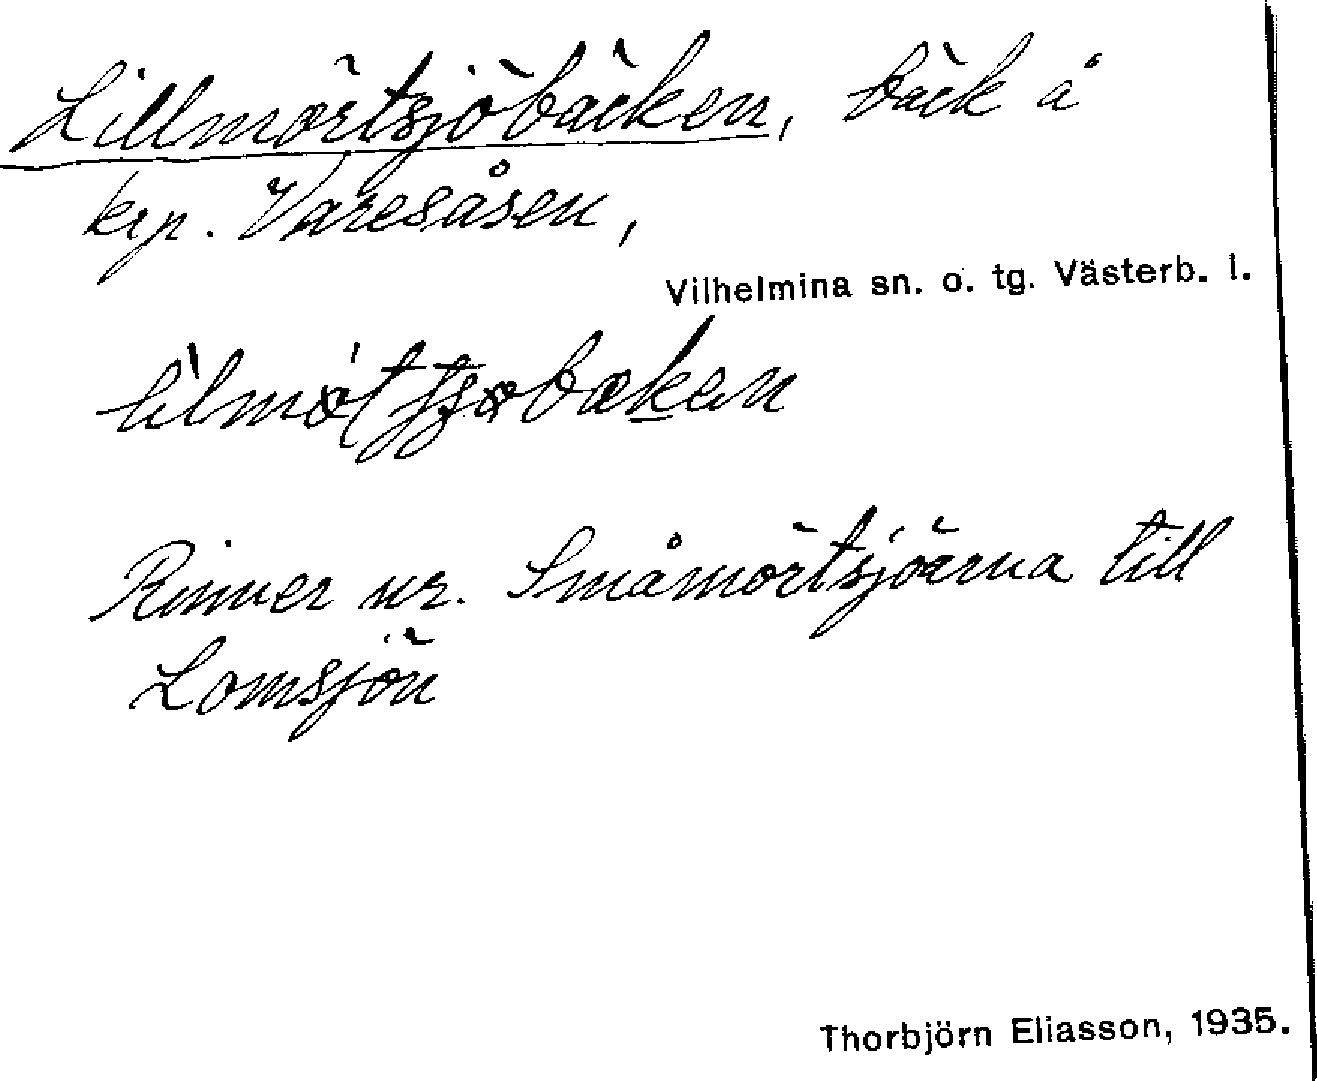 Lillmörtsjöbäcken, bäck å
krp. Varesåsen,
Vilhelmina sn. o. tg. Västerb. l.
Rinner ur. Småmörtsjöarna till
Lomsjön
Thorbjörn Eliasson, 1935.